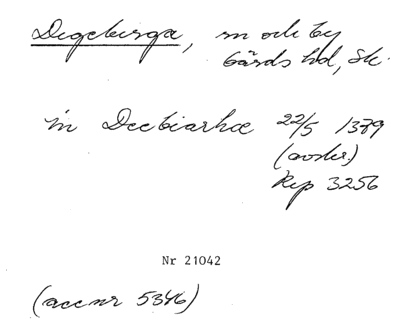 Degeberga, sn och by
Gärds hd, Sk.
in Deebiarhæ 22/5 1379
(avskr.)
Rep 3256
Nr 21042
(acc nr 5346)